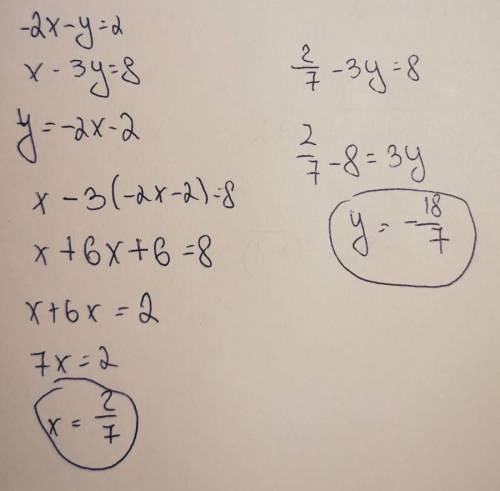 -2x-y=2
x - 3y=8
y = -2x-2
x - 3(-2x-2)=8
x + 6x + 6 = 8
x+6x = 2
7x = 2
x = 2/7
2/7 - 3y = 8
2/7 - 8 = 3y
y = - 18/7